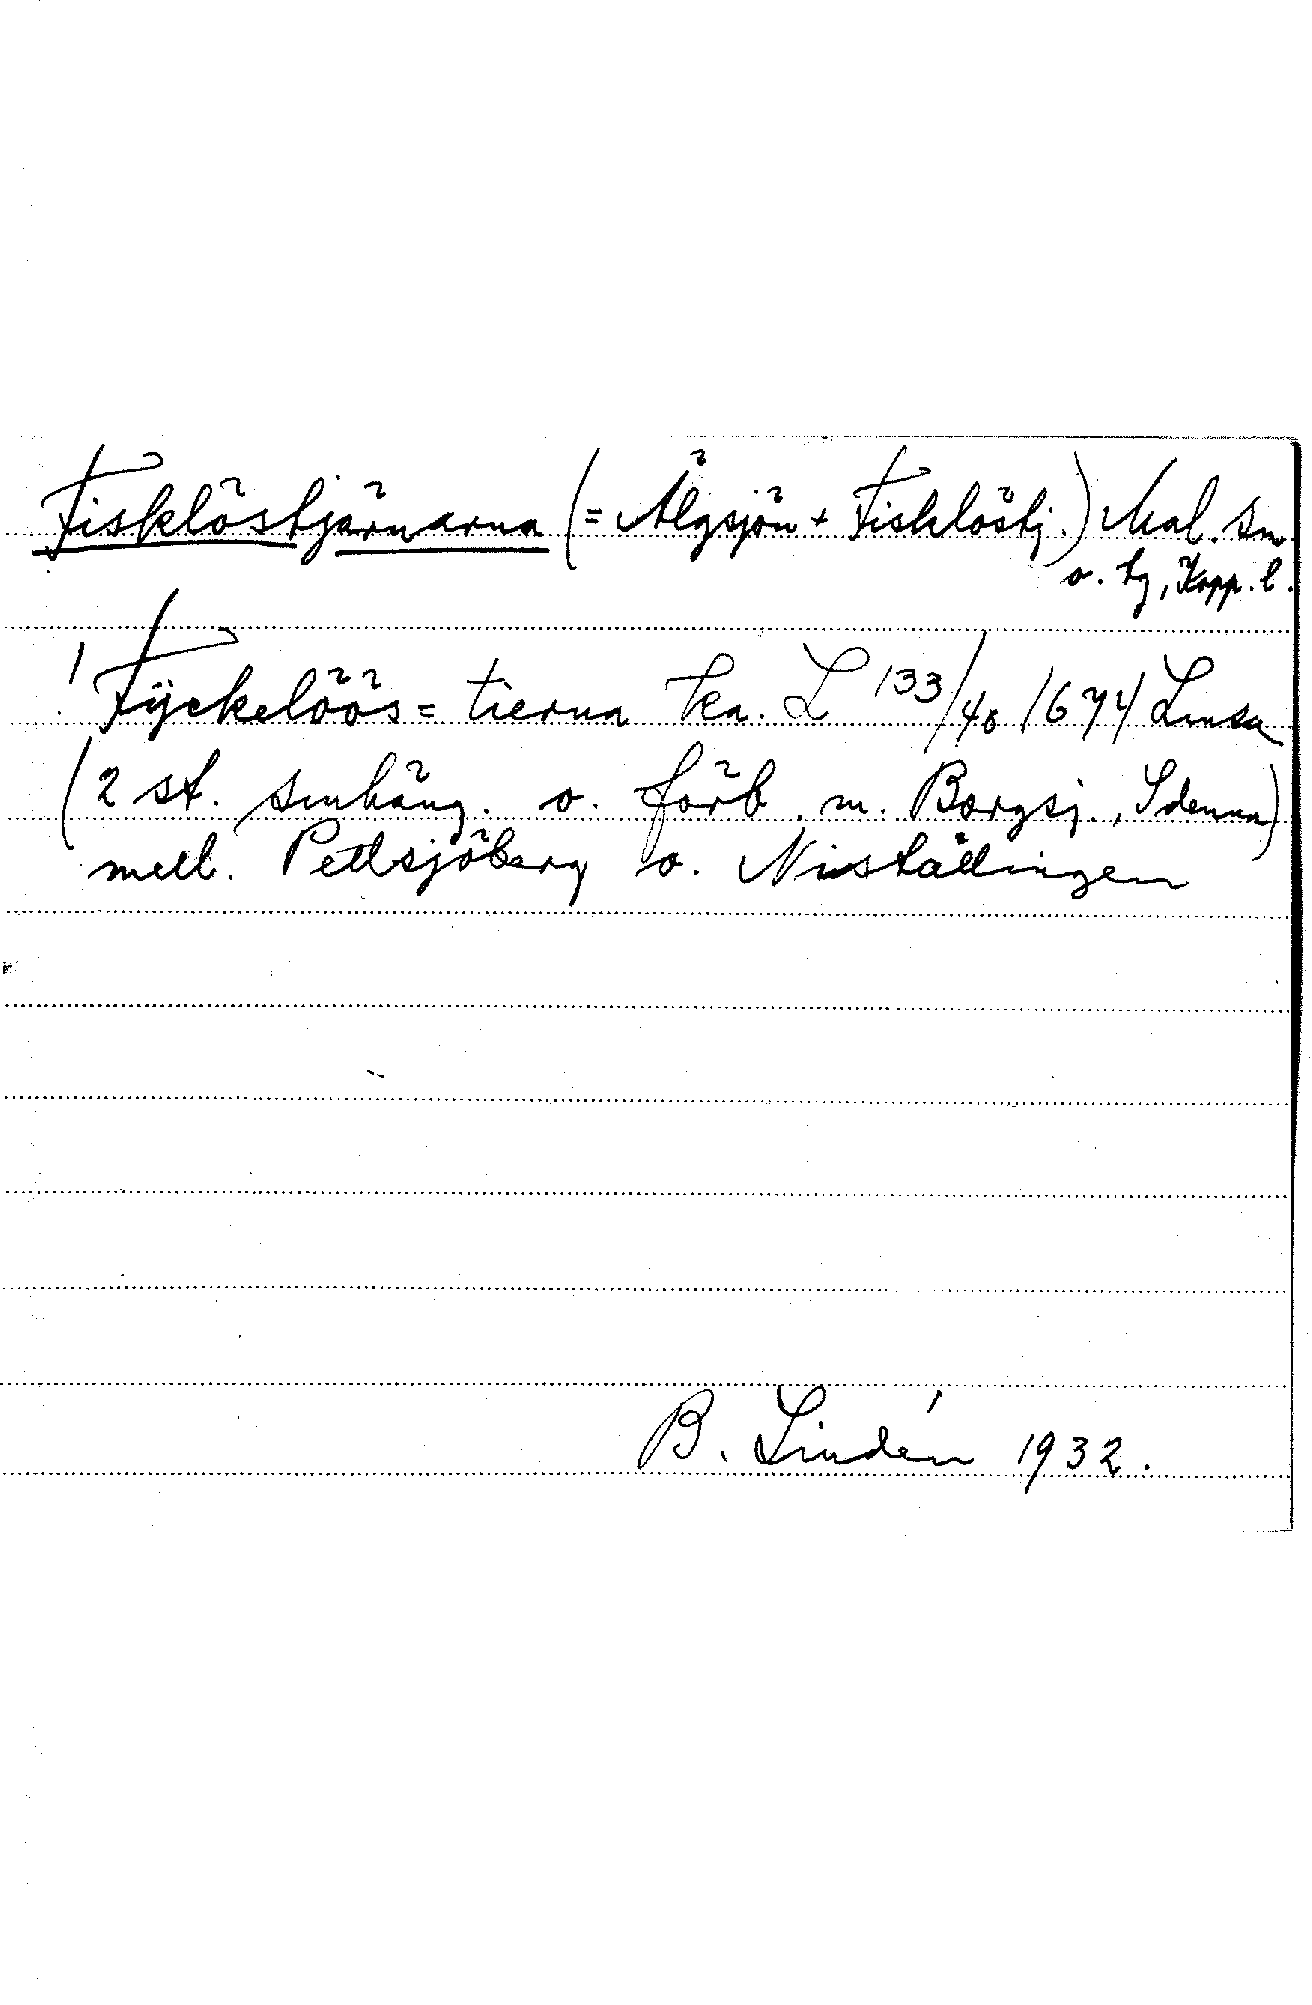 Fisklöstjärnarna (= Älgsjön + Fisklöstj.) Mal. sn
o. tg, Kopp. l.
! Fÿckelöös= tierna ka. L 133/40 1674 Lmsa
(2 st. smhäng. o. förb. m. Borgsj., Idenna)
mell. Petlsjöberg o. Niställingen
B. Lindén 1932.